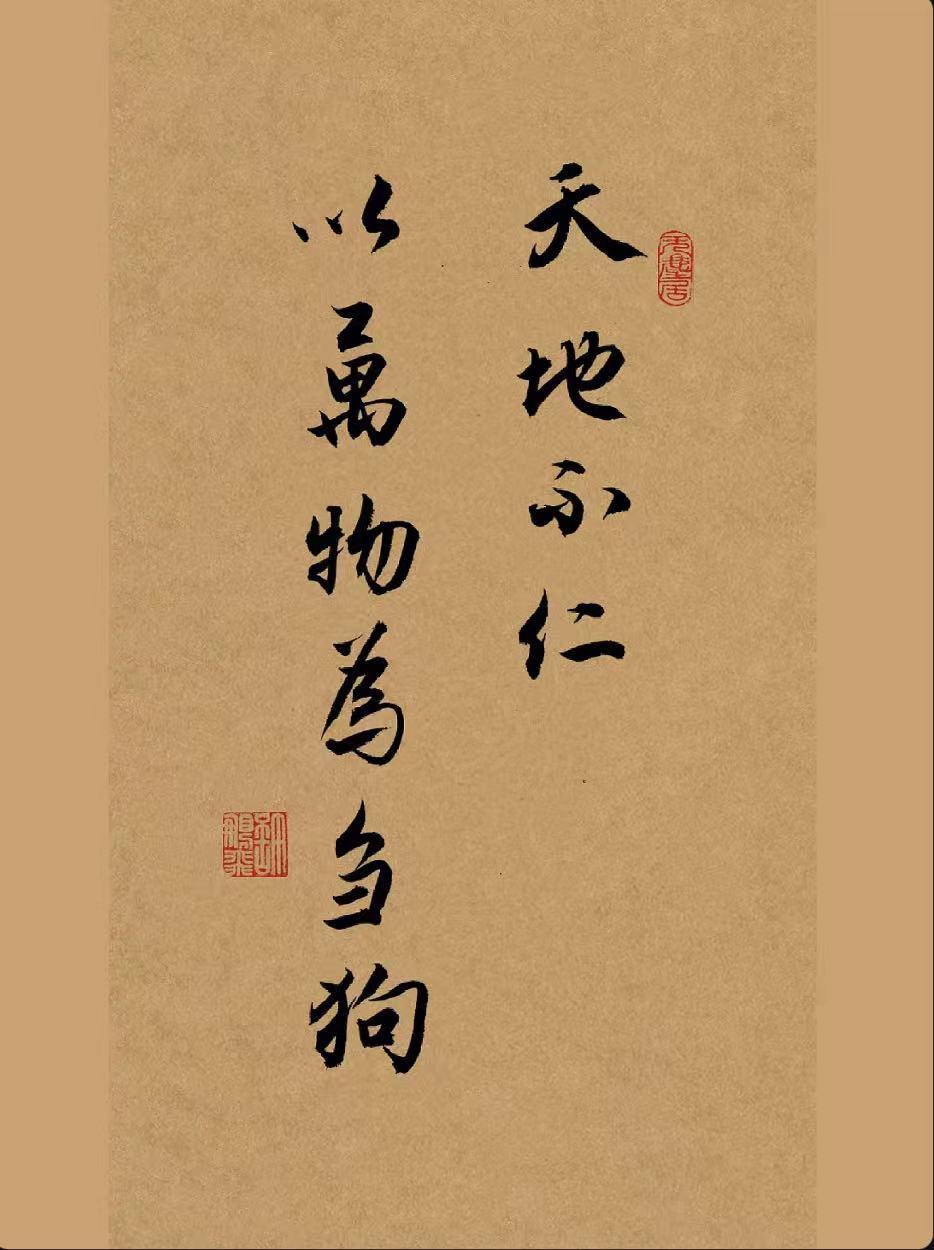 天地不仁
以萬物為刍狗